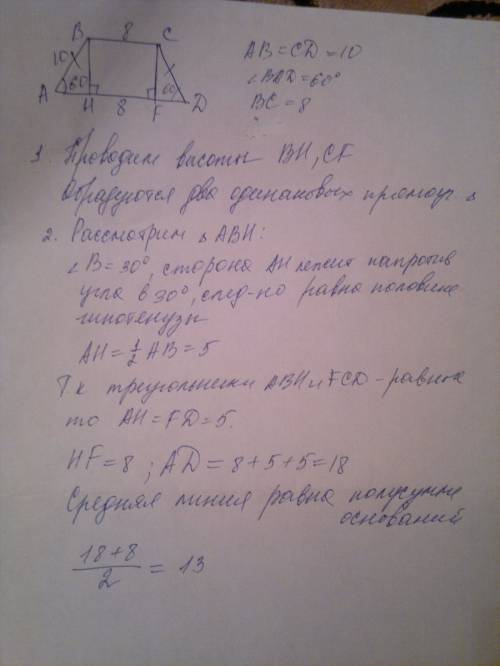 B 8 C
10
A 60° 60° D
H 8 F
AB = CD = 10
∠BAD = 60°
BC = 8
1 Проводим высоты BH, CF
Образуются два одинаковых прямоуг. △
2. Рассмотрим △ ABH:
∠B = 30°, сторона AH лежит напротив
угла в 30°, след-но равна половине
гипотенузы
AH = 1/2 AB = 5
Т к треугольники ABH и FCD - равны
то AH = FD = 5.
HF = 8 ; AD = 8 + 5 + 5 = 18
Средняя линия равна полусумме
оснований
18 + 8 / 2 = 13